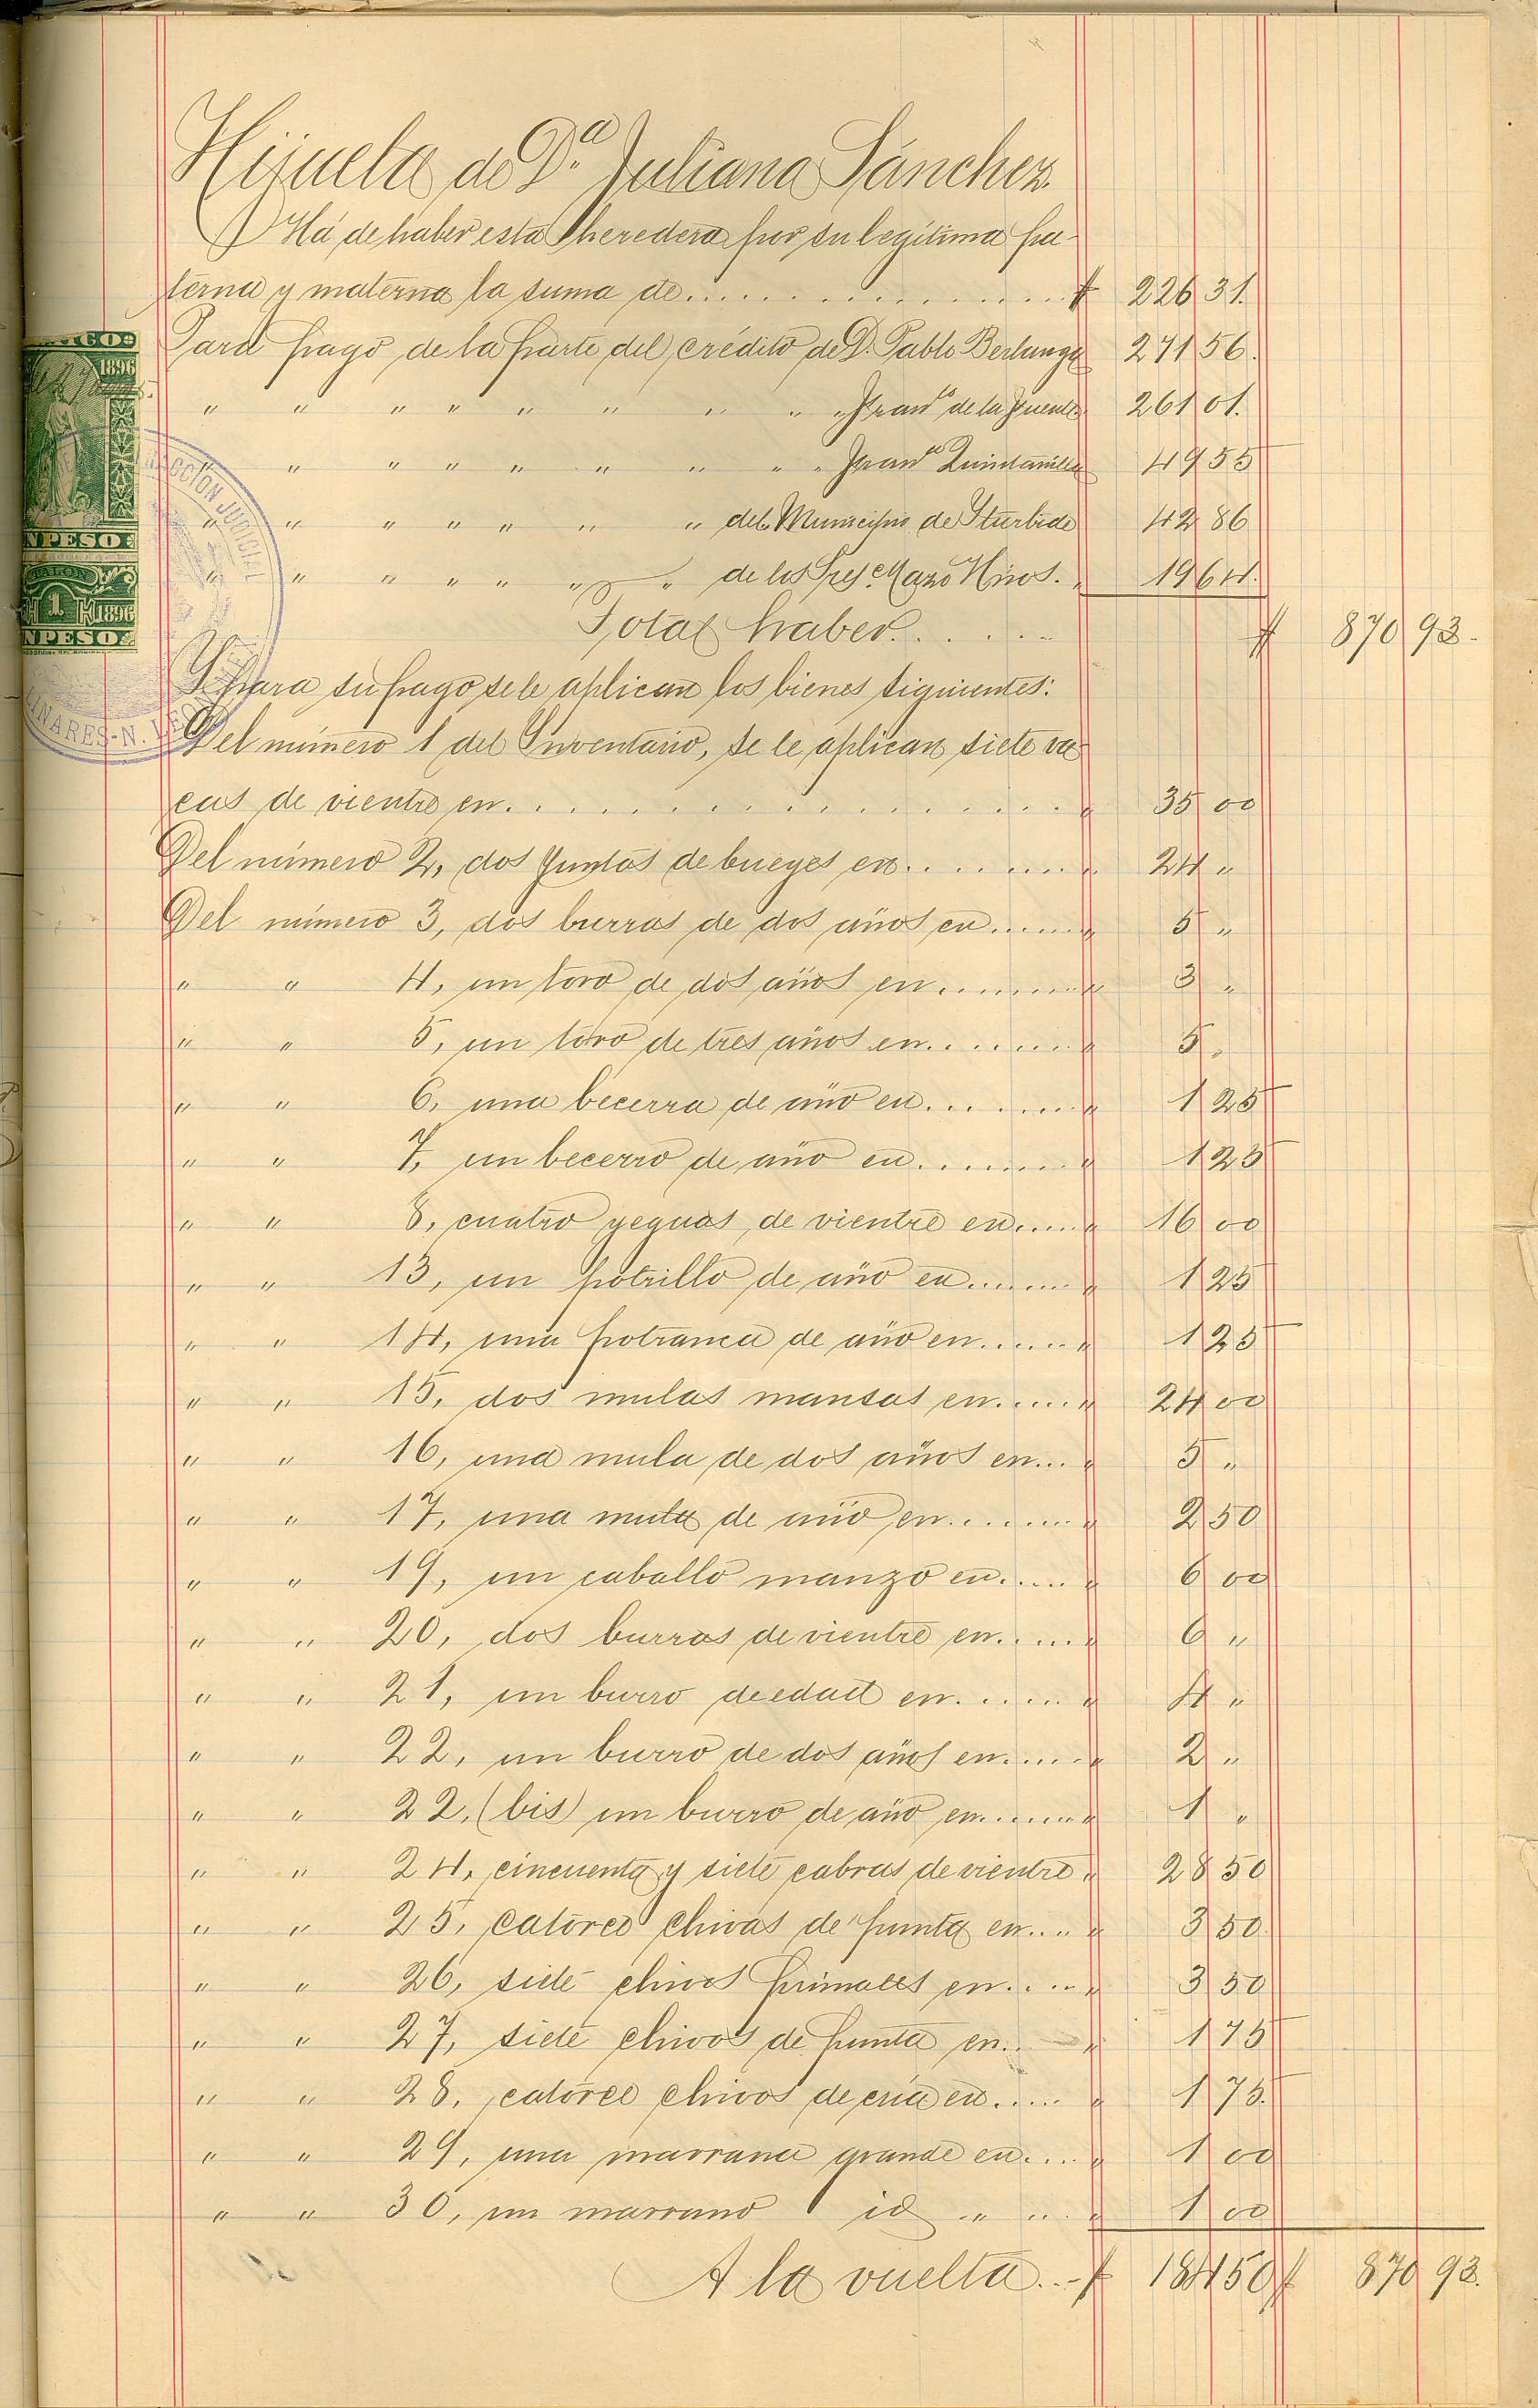 Hijuela de D.ª Juliana Sánchez.
Há de haber esta heredera por su legítima pa-
terna y materna la suma de.................... $ 226 31.
Para pago de la parte del crédito de D. Pablo Berlanga 271 56.
" " " " " " " " " Fran.co de la Fuente 261 01.
" " " " " " " " " Fran.co Quintanilla 49 55
" " " " " " " del Municipio de Yturbide 42 86
" " " " " " " de los Sres. Mazo Hnos. " 19 64.
Total haber....... $ 870 93.
Y para su pago se le aplican los bienes siguientes:
Del número 1 del Inventario, se le aplican siete va
cas de vientre en.................... " 35 00
Del número 2, dos yuntas de bueyes en.......... " 24 "
Del número 3, dos burras de dos años en....... " 5 "
" " 4, un toro de dos años en.......... " 3 "
" " 5, un toro de tres años en.......... " 5 "
" " 6, una becerra de año en.......... " 1 25
" " 7, un becerro de año en.......... " 1 25
" " 8, cuatro yeguas de vientre en..... " 16 00
" " 13, un potrillo de año en........ " 1 25
" " 14, una potranca de año en....... " 1 25
" " 15, dos mulas mansas en...... " 24 00
" " 16, una mula de dos años en... " 5 "
" " 17, una mula de año en......... " 2 50
" " 19, un caballo manzo en...... " 6 00
" " 20, dos burras de vientre en..... " 6 "
" " 21, un burro de edad en....... " 4 "
" " 22, un burro de dos años en..... " 2 "
" " 22, (bis) un burro de año en....... " 1 "
" " 24, cincuenta y siete cabras de vientre " 28 50
" " 25, catorce chivas de punta en.... " 3 50
" " 26, siete chivos primales en..... " 3 50
" " 27, siete chivos de punta en.. " 1 75
" " 28, catorce chivos de cría en..... " 1 75.
" " 29, una marrana grande en.... " 1 00
" " 30, un marrano id " " " 1 00
A la vuelta..- $ 184 50 $ 870 93.
1896
UN PESO
TALON
1 1896
UN PESO
JUDICIAL
LINARES-N. LEON